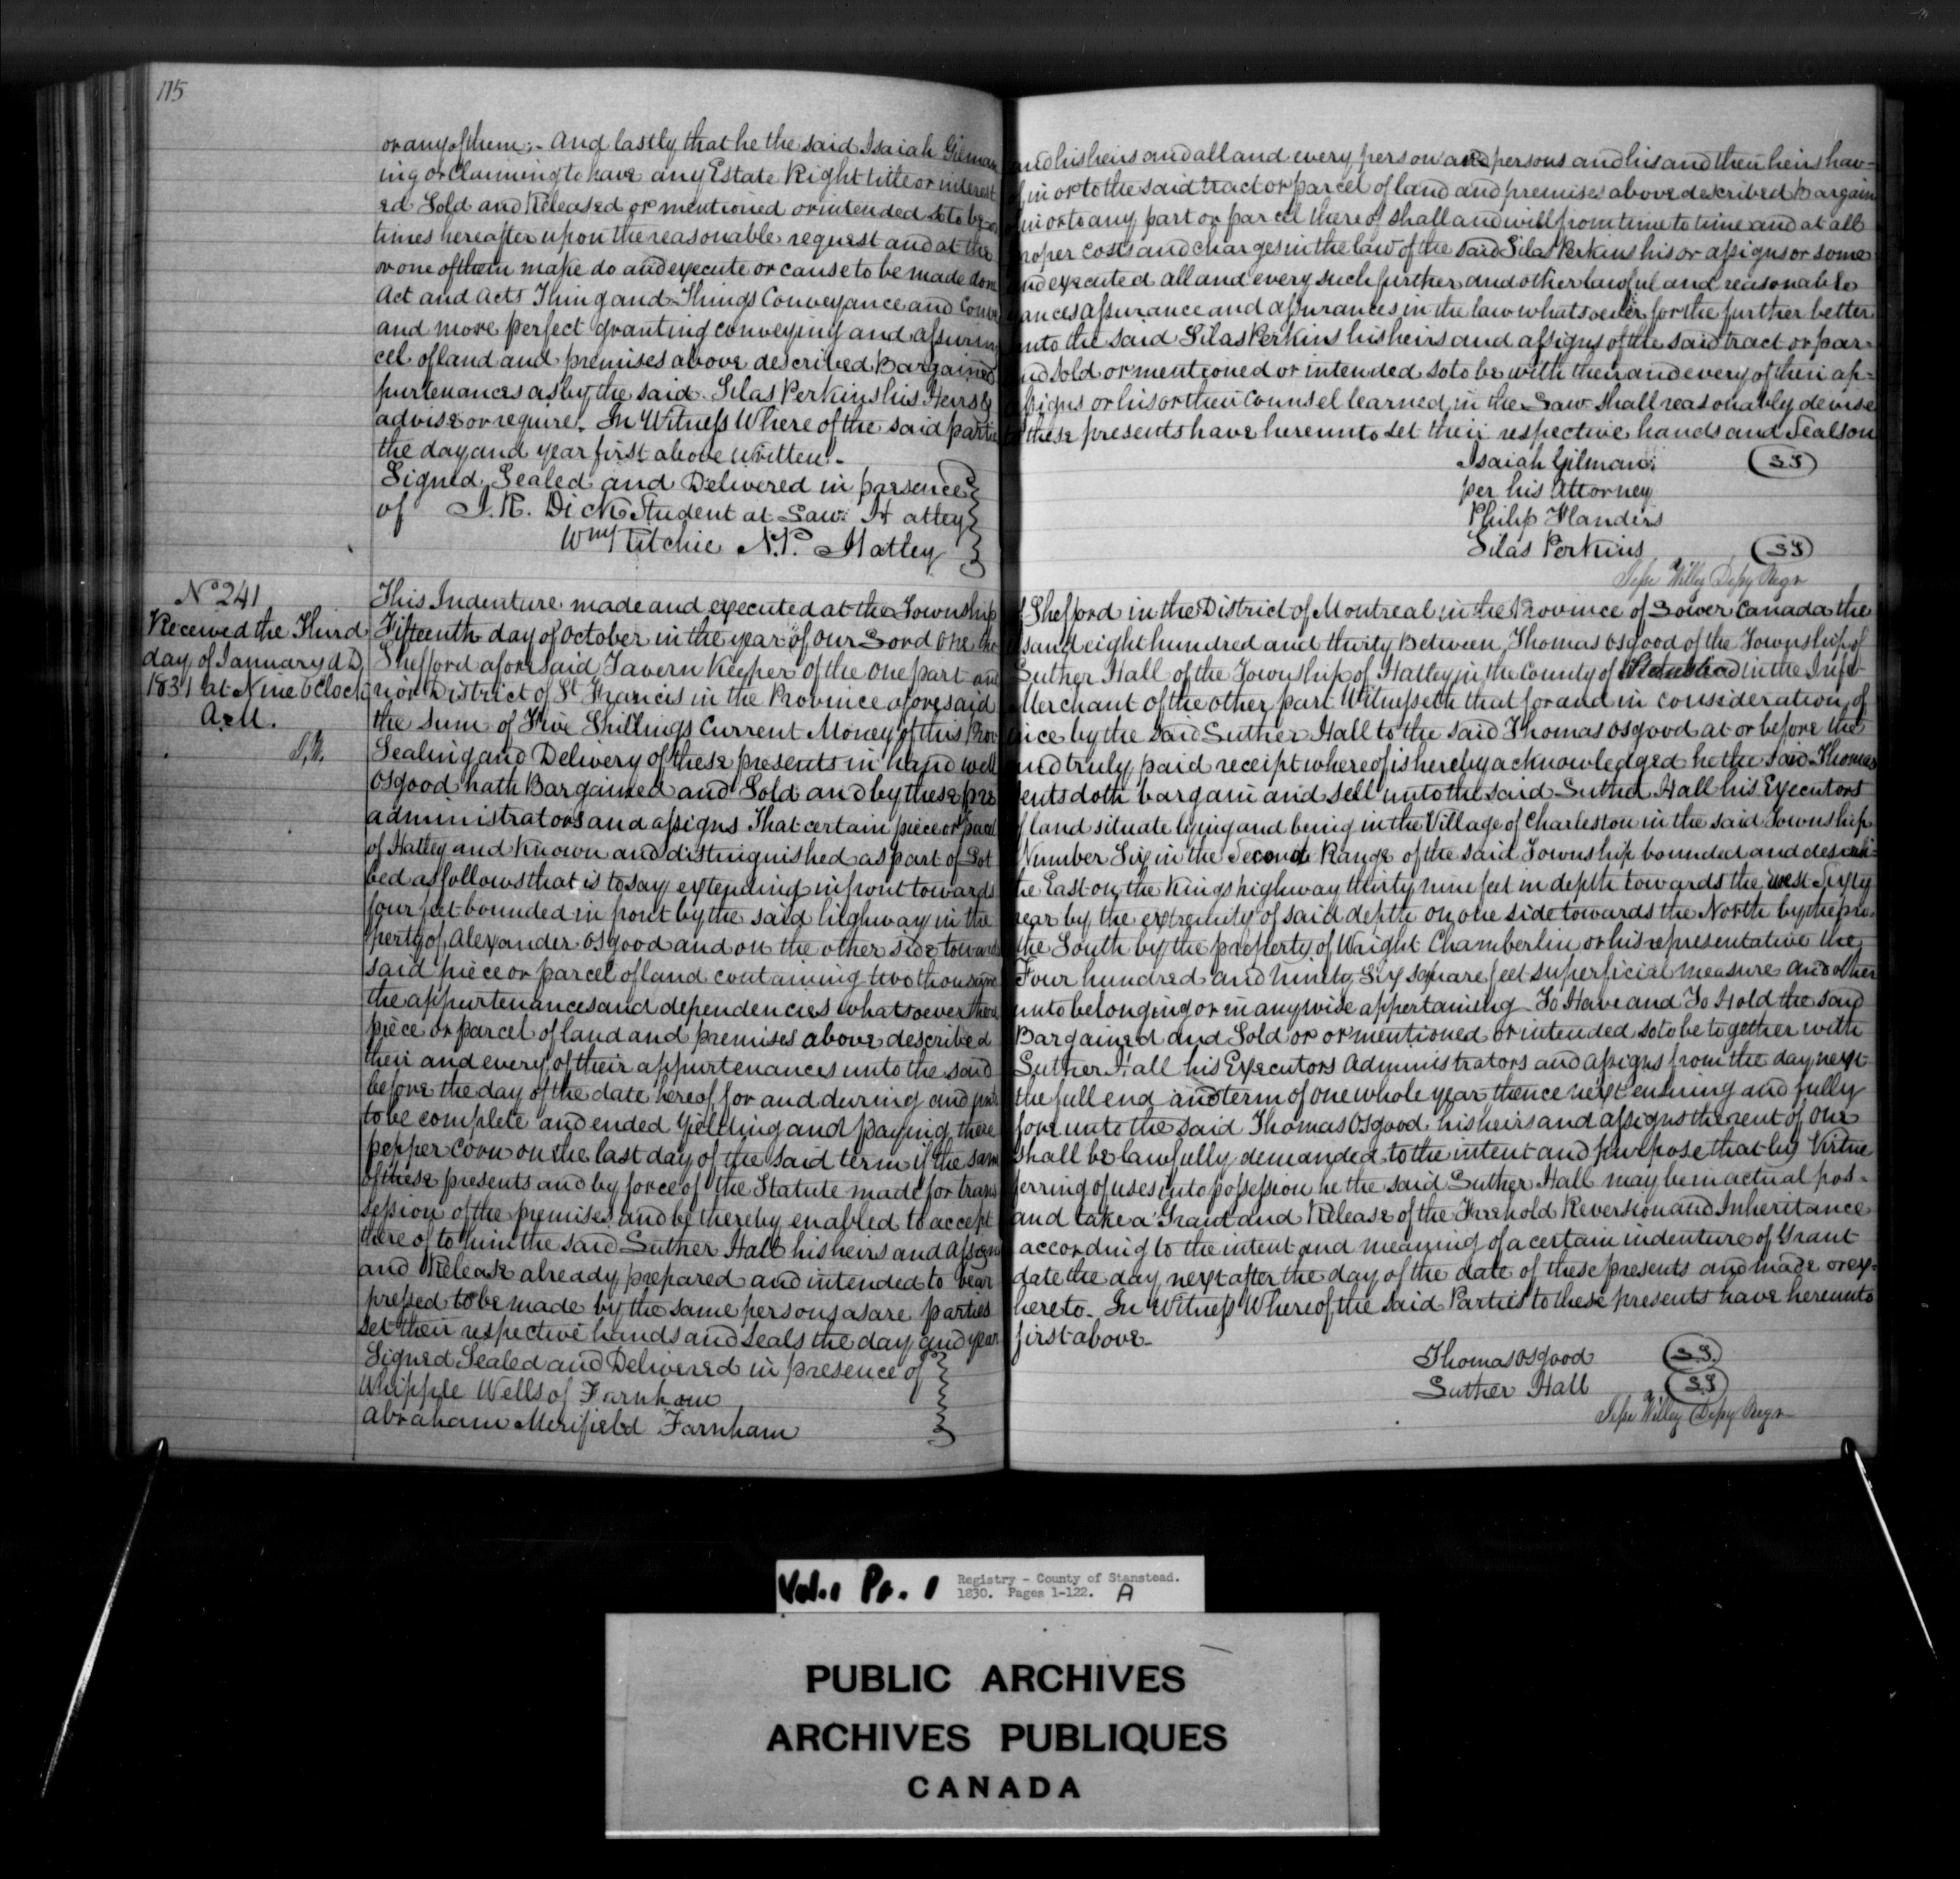 115
or any of them;- And lastly that he the said Isaiah Gilman and his heirs and all and every person and persons and his and their heirs hav-
ing or Claiming to have any Estate Right title or interest of in or to the said tract or parcel of land and premises above described Bargain
ed Sold and Released or mentioned or intended so to be or in or to any part or parcel there of shall and will from time to time and at all
times hereafter upon the reasonable request and at the proper costs and charges in the law of the said Silas Perkins his or assigns or some
or one of them make do and execute or cause to be made done and executed all and every such further and other lawful and reasonable
Act and Acts Thing and Things Conveyance and Conveyances assurance and assurances in the law whatsoever for the further better
and more perfect granting conveying and assuring unto the said Silas Perkins his heirs and assigns of the said tract or par-
cel of land and premises above described Bargained and Sold or mentioned or intended so to be with their and every of their ap-
purtenances as by the said Silas Perkins his Heirs & assigns or his or their Counsel learned in the Law shall reasonably devise
advise or require. In Witness Where of the said parties to these presents have hereunto set their respective hands and Seals on
the day and year first above written.-
Signed Sealed and Delivered in parsence
of J. R. Dick Student at Law. Hatley
Wm Ritchie N.P. Hatley
Isaiah Gilman. LS
per his Attorney
Philip Flanders
Silas Perkins LS
Jesse Willey Depy Regr
No 241
Received the Third
day of January A D,
1831 at Nine O'Clock
A.M.
This Indenture made and executed at the Township of Shefford in the District of Montreal in the Province of Lower Canada the
Fifteenth day of October in the year of our Lord one thousand eight hundred and thirty Between Thomas Osgood of the Township of
Shefford aforesaid Tavern Keeper of the one part and Luther Hall of the Township of Hatley in the County of Stanstead in the Infe-
rior District of St Francis in the Province aforesaid Merchant of the other part Witnesseth that for and in consideration of
the Sum of Five Shillings Current Money of this Province by the said Luther Hall to the said Thomas Osgood at or before the
Sealing and Delivery of these presents in hand well and truly paid receipt whereof is hereby acknowledged he the said Thomas
Osgood hath Bargained and Sold and by these presents doth bargain and sell unto the said Luther Hall his Executors
administrators and assigns That certain piece or parcel of land situate lying and being in the Village of Charleston in the said Township
of Hatley and Known and distinguished as part of Lot Number Six in the Second Range of the said Township bounded and descri-
bed as follows that is to say extending in front towards the East on the Kings highway thirty nine feet in depth towards the west Sixty
four feet bounded in front by the said highway in the rear by the extremity of said depth on one side towards the North by the pro-
perty of Alexander Osgood and on the other side towards the South by the property of Wright Chamberlin or his representative the
said piece or parcel of land containing two thousand Four hundred and ninety Six square feet superficial measure and other
the appurtenances and dependencies whatsoever thereunto belonging or in anywise appertaining To Have and To Hold the said
piece or parcel of land and premises above described Bargained and Sold or or mentioned or intended so to be together with
their and every of their appurtenances unto the said Luther Hall his Executors Administrators and assigns from the day next
before the day of the date hereof for and during and unto the full end and term of one whole year thence next ensuing and fully
to be complete and ended Yielding and paying therefore unto the said Thomas Osgood his heirs and assigns the rent of one
pepper corn on the last day of the said term if the same shall be lawfully demanded to the intent and purpose that by Virtue
of these presents and by force of the Statute made for transferring of uses into possession he the said Luther Hall may be in actual pos-
session of the premises and be thereby enabled to accept and take a Grant and Release of the Freehold Reversion and Inheritance
there of to him the said Luther Hall his heirs and assigns according to the intent and meaning of a certain indenture of Grant
and Release already prepared and intended to bear date the day next after the day of the date of these presents and made or ex-
pressed to be made by the same persons as are parties hereto. In Witness Whereof the said Parties to these presents have hereunto
set their respective hands and Seals the day and year first above.
Signed Sealed and Delivered in presence of
Whipple Wells of Farnham
Abraham Merifield Farnham
Thomas Osgood LS
Luther Hall LS
Jesse Willey Depy Regr
Vol. 1 Pr. 1 Registry - County of Stanstead.
1830. Pages 1-122. A
PUBLIC ARCHIVES
ARCHIVES PUBLIQUES
CANADA